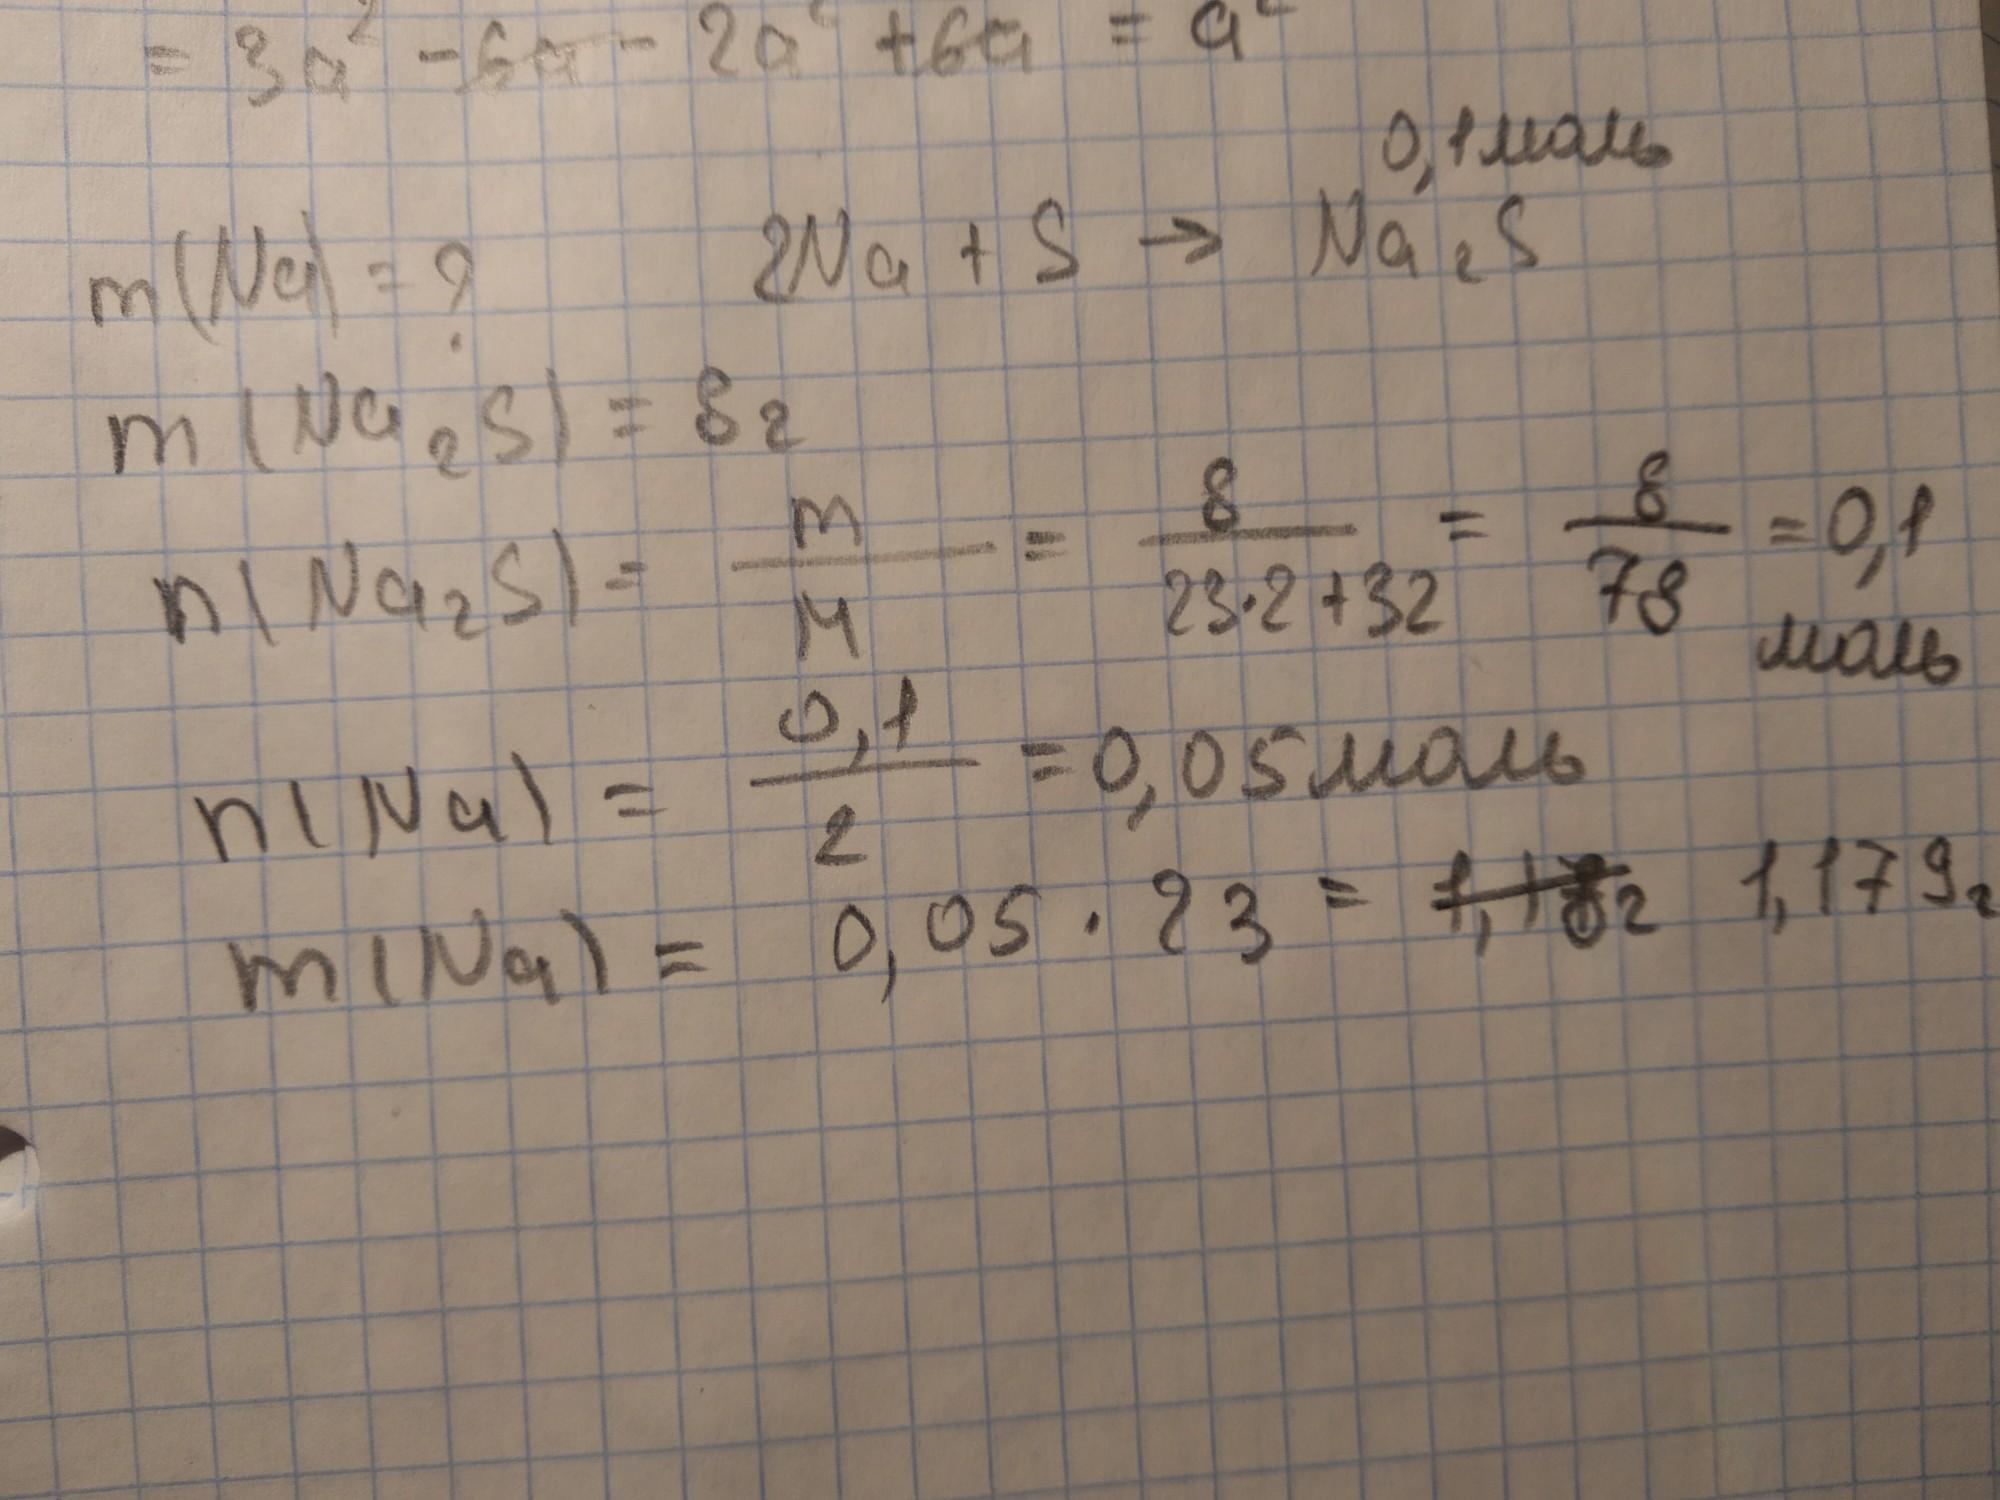 = 3a² - 6a - 2a² + 6a = a²
0,1 моль
m(Na) = ? 2Na + S → Na₂S
m(Na₂S) = 8г
n(Na₂S) = m/M = 8/(23·2+32) = 8/78 = 0,1
моль
n(Na) = 0,1/2 = 0,05 моль
m(Na) = 0,05 · 23 = 1,179г